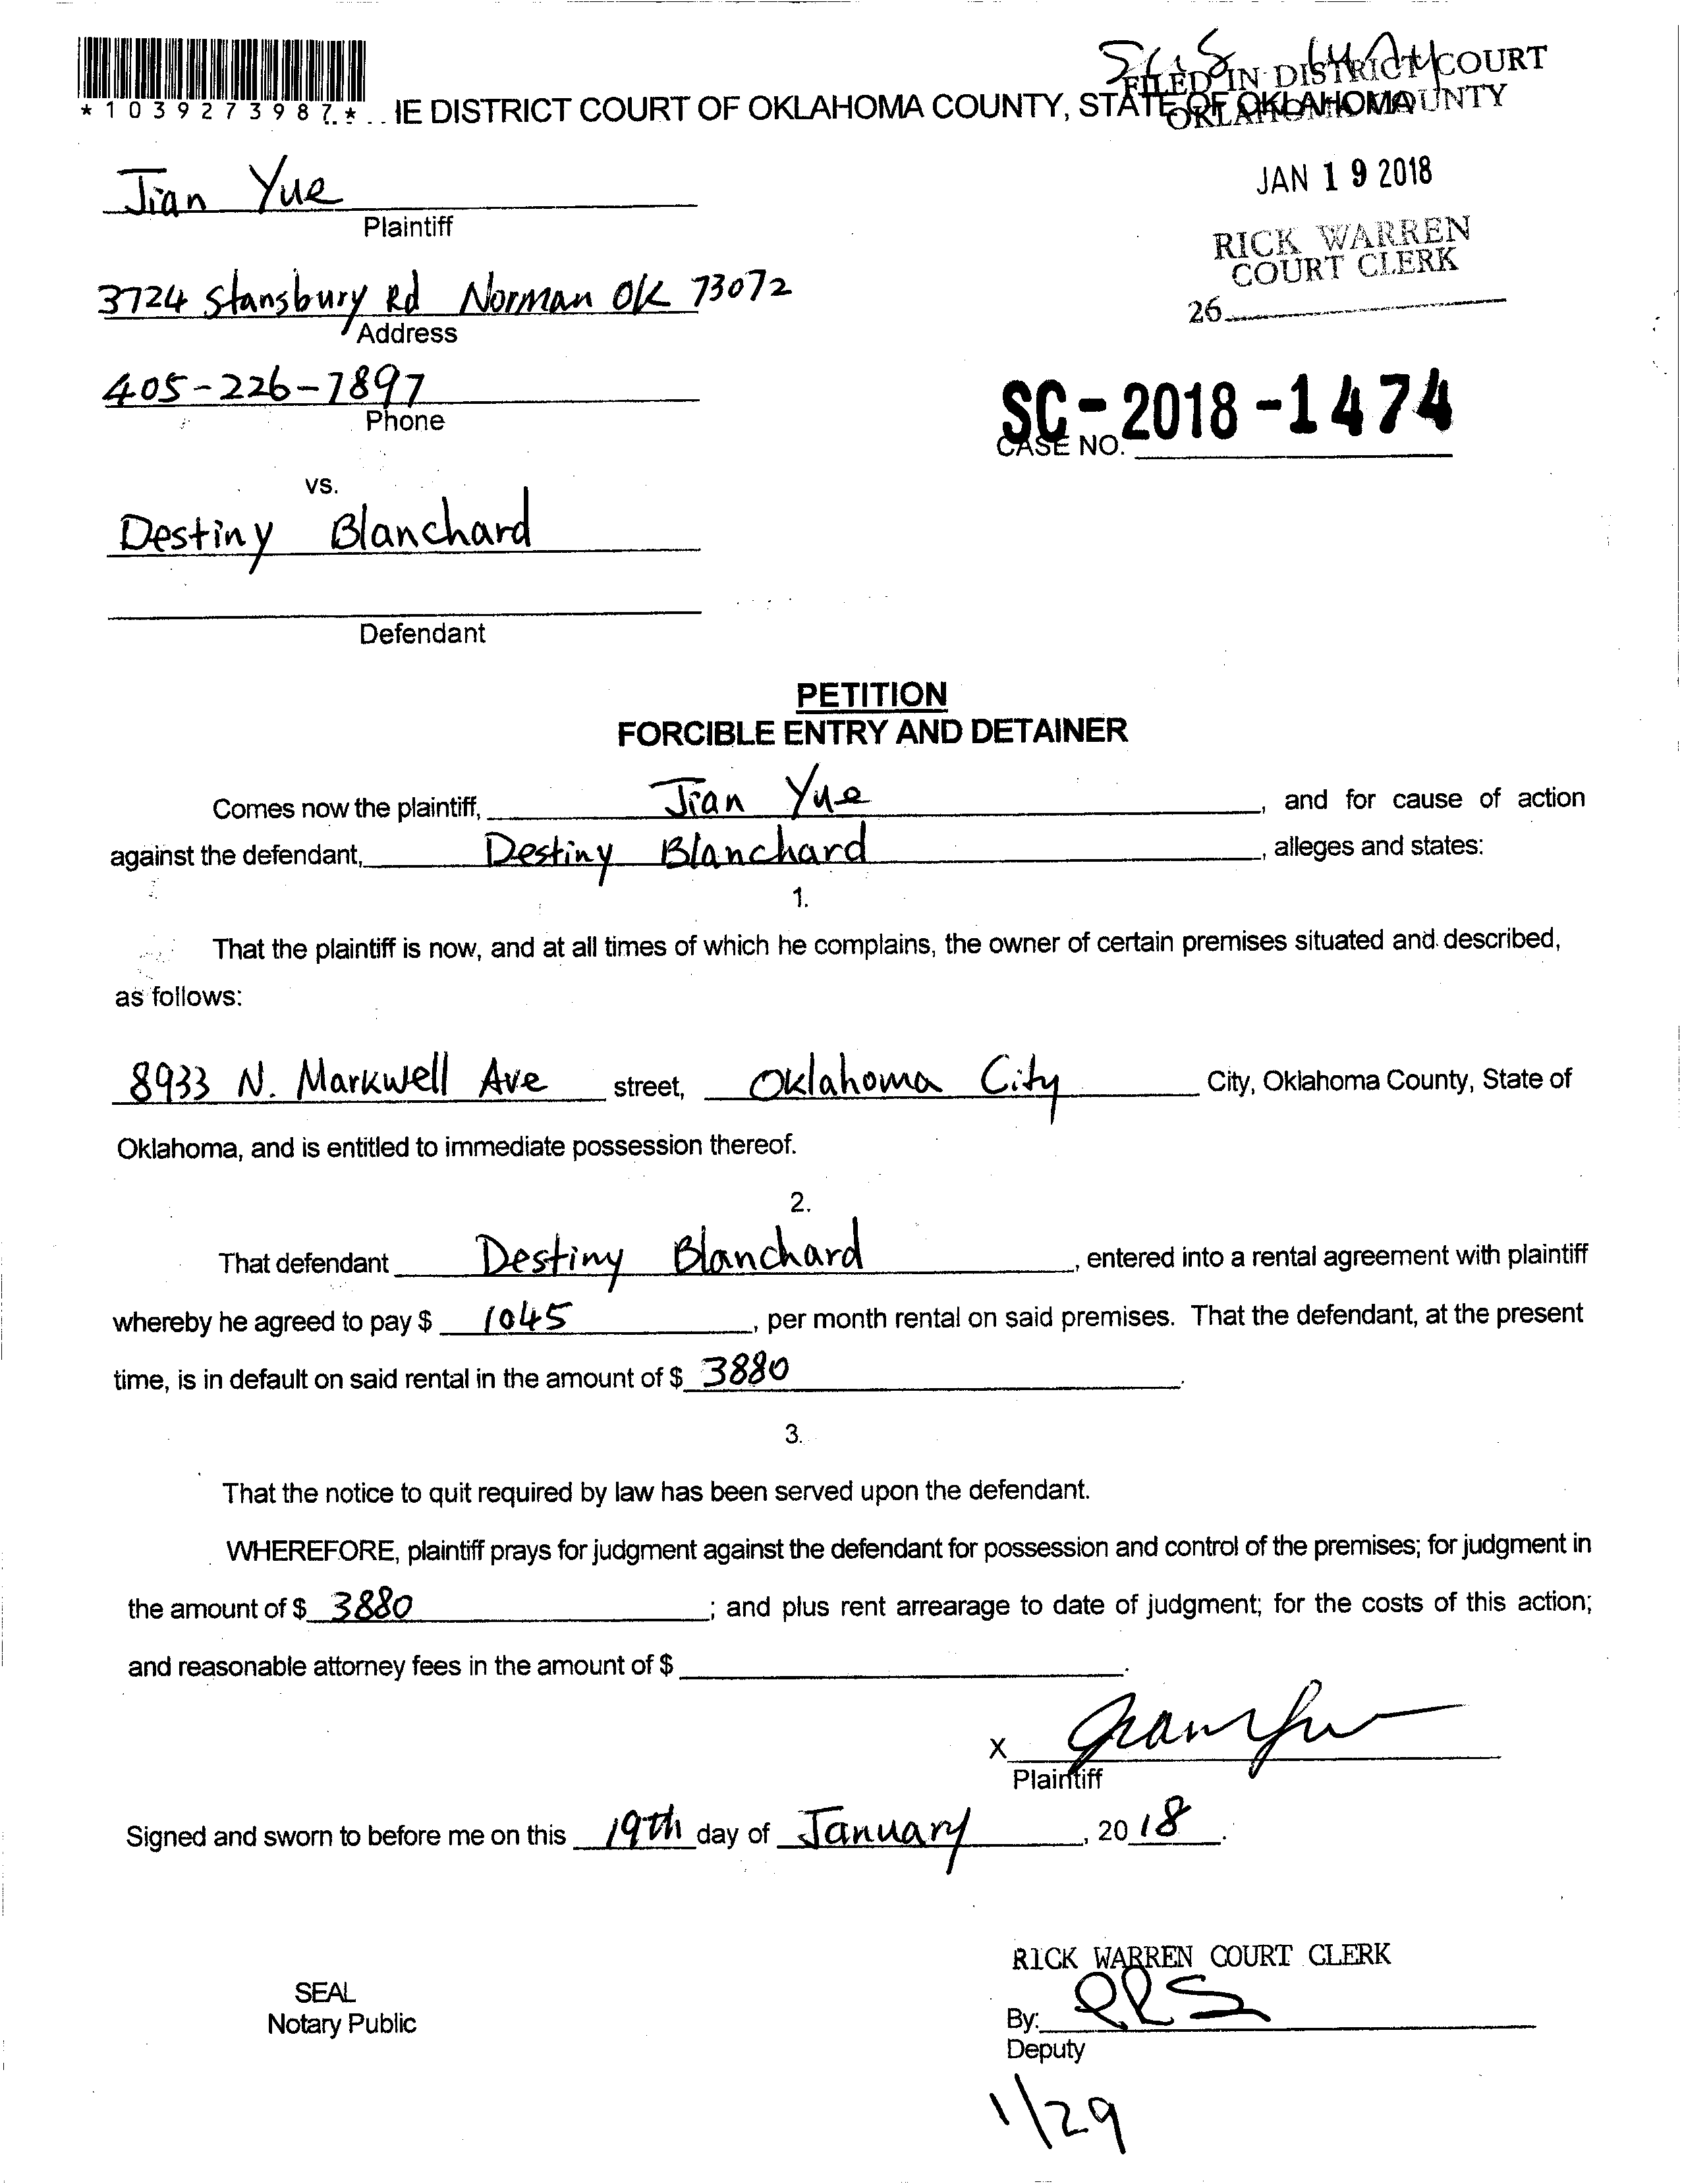 FILED IN DISTRICT COURT
OKLAHOMA COUNTY
*1039273987.* IE DISTRICT COURT OF OKLAHOMA COUNTY, STATE OF OKLAHOMA
JAN 19 2018
RICK WARREN
COURT CLERK
26
Jian Yue
Plaintiff
3724 Stansbury Rd Norman OK 73072
Address
405-226-7897
Phone
SC-2018-1474
CASE NO.
vs.
Destiny Blanchard
Defendant
PETITION
FORCIBLE ENTRY AND DETAINER
Comes now the plaintiff, Jian Yue, and for cause of action
against the defendant, Destiny Blanchard, alleges and states:
1.
That the plaintiff is now, and at all times of which he complains, the owner of certain premises situated and described,
as follows:
8933 N. Markwell Ave street, Oklahoma City City, Oklahoma County, State of
Oklahoma, and is entitled to immediate possession thereof.
2.
That defendant Destiny Blanchard, entered into a rental agreement with plaintiff
whereby he agreed to pay $ 1045, per month rental on said premises. That the defendant, at the present
time, is in default on said rental in the amount of $ 3880.
3.
That the notice to quit required by law has been served upon the defendant.
WHEREFORE, plaintiff prays for judgment against the defendant for possession and control of the premises; for judgment in
the amount of $ 3880; and plus rent arrearage to date of judgment; for the costs of this action;
and reasonable attorney fees in the amount of $.
X
Plaintiff
Signed and sworn to before me on this 19th day of January, 2018.
RICK WARREN COURT CLERK
SEAL
Notary Public
By:
Deputy
1/29